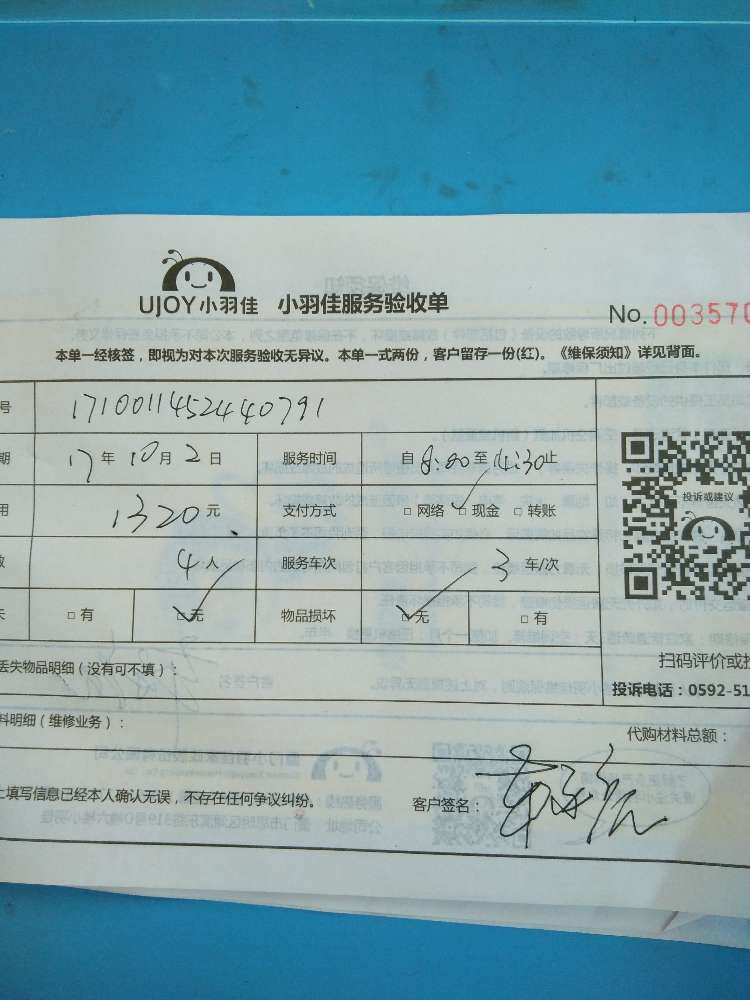 UJOY小羽佳 小羽佳服务验收单
No. 003570
本单一经核签，即视为对本次服务验收无异议。本单一式两份，客户留存一份(红)。《维保须知》详见背面。
号 1710011452440791
期 17年10月2日 服务时间 自8:00至14:30止
用 1320元 支付方式 □网络 □现金 □转账
数 4人 服务车次 3车/次
失 □有 □无 物品损坏 □无 □有
投诉或建议
扫码评价或投
丢失物品明细（没有可不填）：
投诉电话：0592-51
料明细（维修业务）：
代购材料总额：
上填写信息已经本人确认无误，不存在任何争议纠纷。 客户签名：